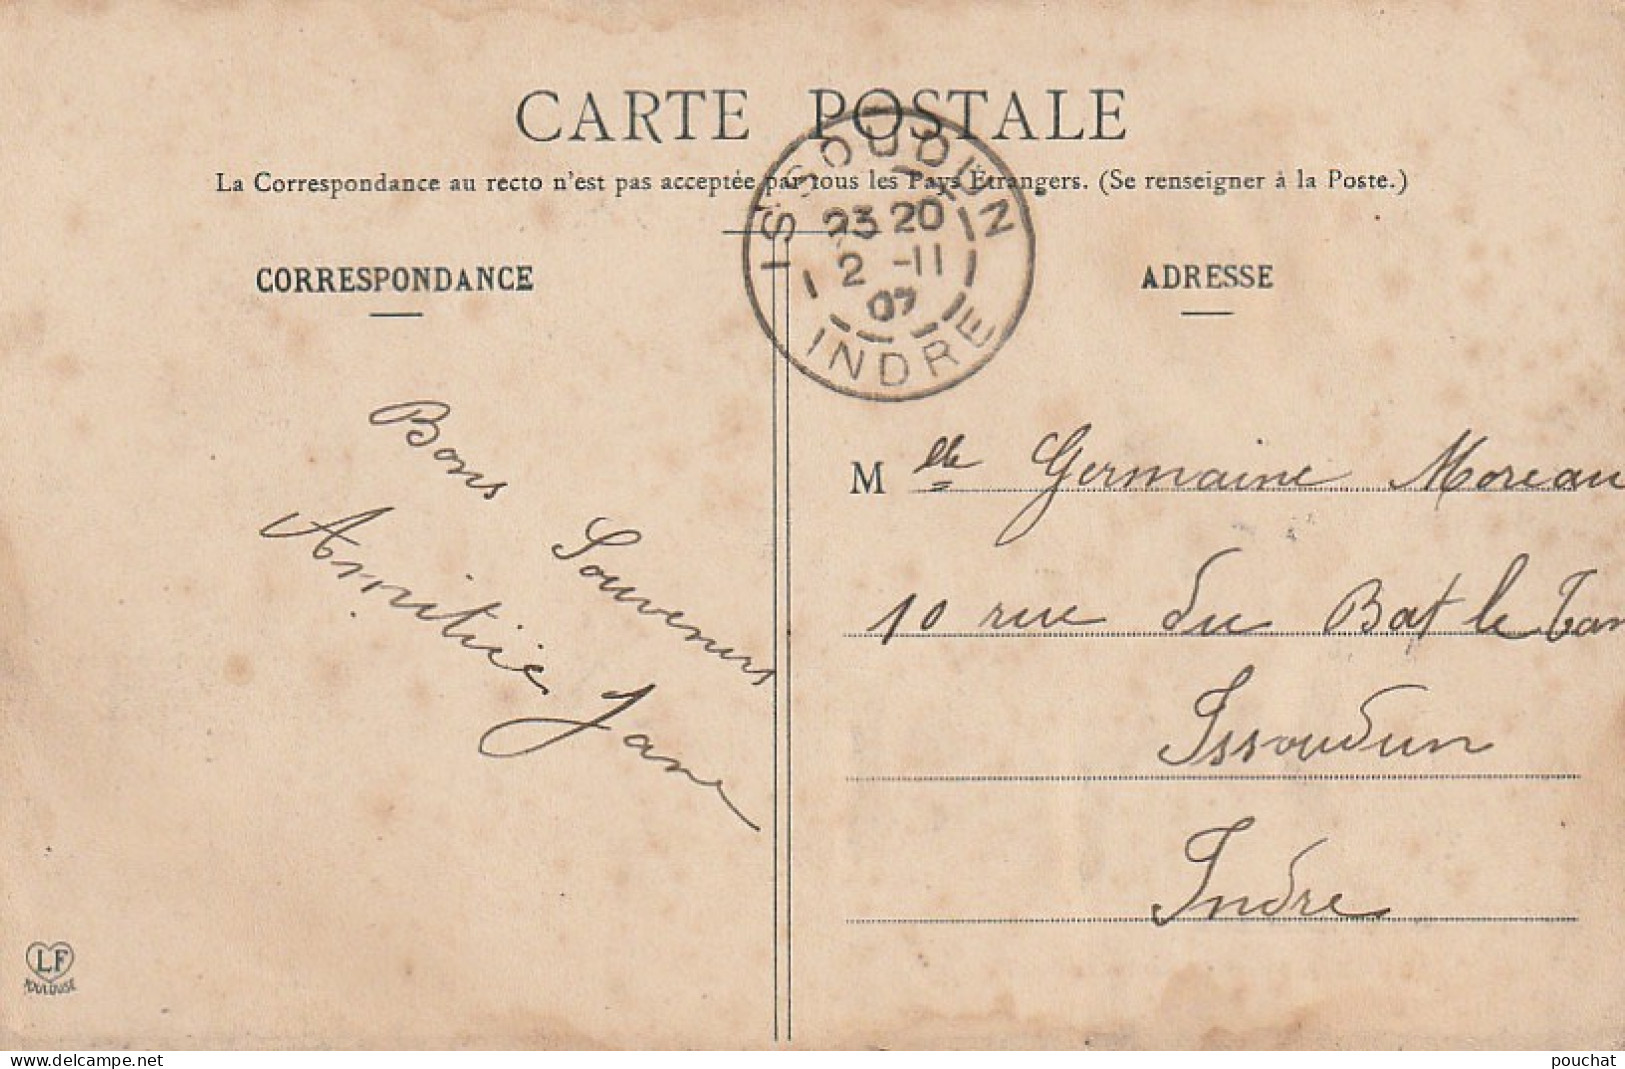 CARTE POSTALE
La Correspondance au recto n'est pas acceptée par tous les Pays Étrangers. (Se renseigner à la Poste.)
ISSOUDUN
23 20
2 -11
07
INDRE
CORRESPONDANCE
ADRESSE
Bons Souvenirs
Amitiés
Jane
M elle Germaine Moreau
10 rue du Bat le Tan
Issoudun
Indre
LF
TOULOUSE
http://www.delcampe.net
pouchat